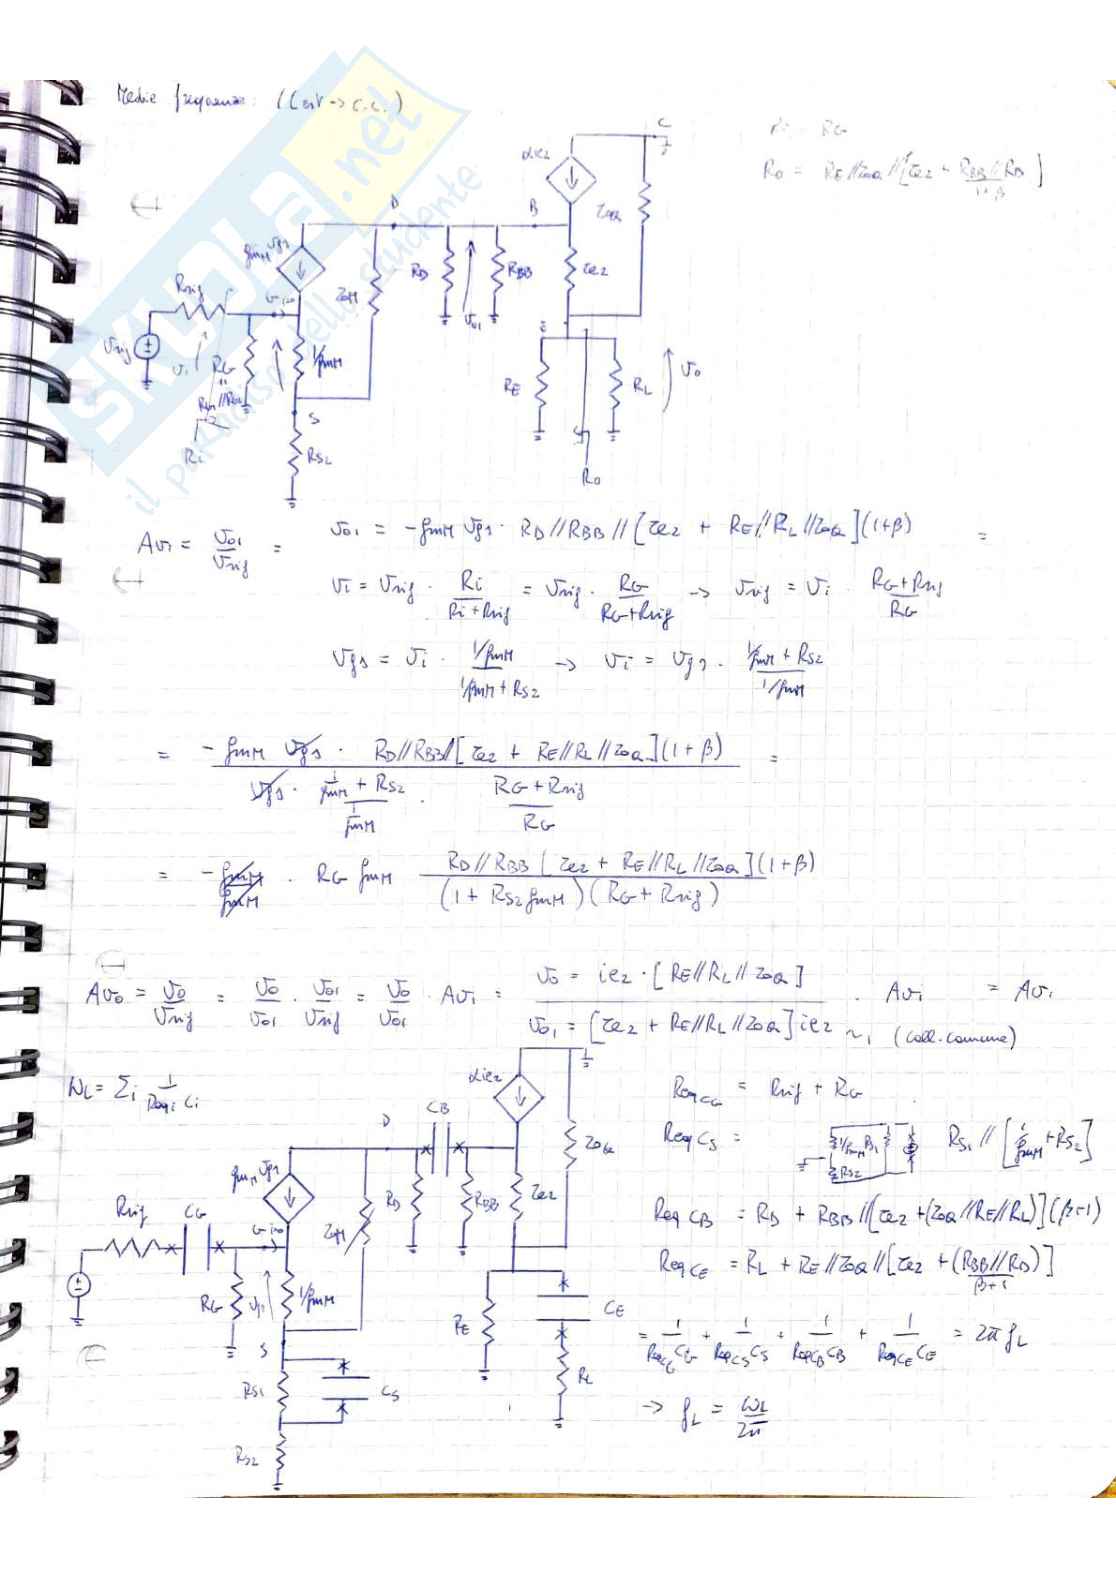 Medie frequenze: (Cest → C.C.)
Ri = RG
Ro = RE//roQ//[re2 + RBB//RD / 1+β]
C
αie2
roQ
D
B
gmM vgs
RD
RBB
re2
Rsig
G i=0
roM
vo1
vsig
vi
RG
1/gmM
E
RE
RL
vo
Ri
S
RS2
Ro
Av1 = vo1/vsig =
vo1 = -gmM vgs · RD//RBB//[re2 + RE//RL//roQ](1+β) =
vi = vsig · Ri/(Ri+Rsig) = vsig · RG/(RG+Rsig) → vsig = vi · (RG+Rsig)/RG
vgs = vi · (1/gmM)/(1/gmM + RS2) → vi = vgs · (1/gmM + RS2)/(1/gmM)
= -gmM vgs · RD//RBB//[re2 + RE//RL//roQ](1+β) / vgs · (1/gmM + RS2)/(1/gmM) · (RG+Rsig)/RG =
= -gmM/gmM · RG gmM RD//RBB[re2 + RE//RL//roQ](1+β) / (1 + RS2 gmM)(RG + Rsig)
Avo = vo/vsig = vo/vo1 · vo1/vsig = vo/vo1 · Av1 = vo = ie2 · [RE//RL//roQ] / vo1 = [re2 + RE//RL//roQ] ie2 · Av1 = Av1
~1 (coll. comune)
WL = Σi 1/Reqi Ci
αie2
ReqCG = Rsig + RG
D
CB
roQ
ReqCS =
1/gmM
RS1
RS2
RS1 // [1/gmM + RS2]
gmM vgs
RD
RBB
re2
ReqCB = RD + RBB//[re2 + (roQ//RE//RL)](β+1)
Rsig
CG
G i=0
roM
ReqCE = RL + RE//roQ//[re2 + (RBB//RD)/β+1]
RG
vgs
1/gmM
RE
CE
= 1/ReqCG CG + 1/ReqCS CS + 1/ReqCB CB + 1/ReqCE CE = 2π fL
S
RS1
CS
RL
→ fL = ωL/2π
RS2
SKUOLA.net
il paradiso dello studente